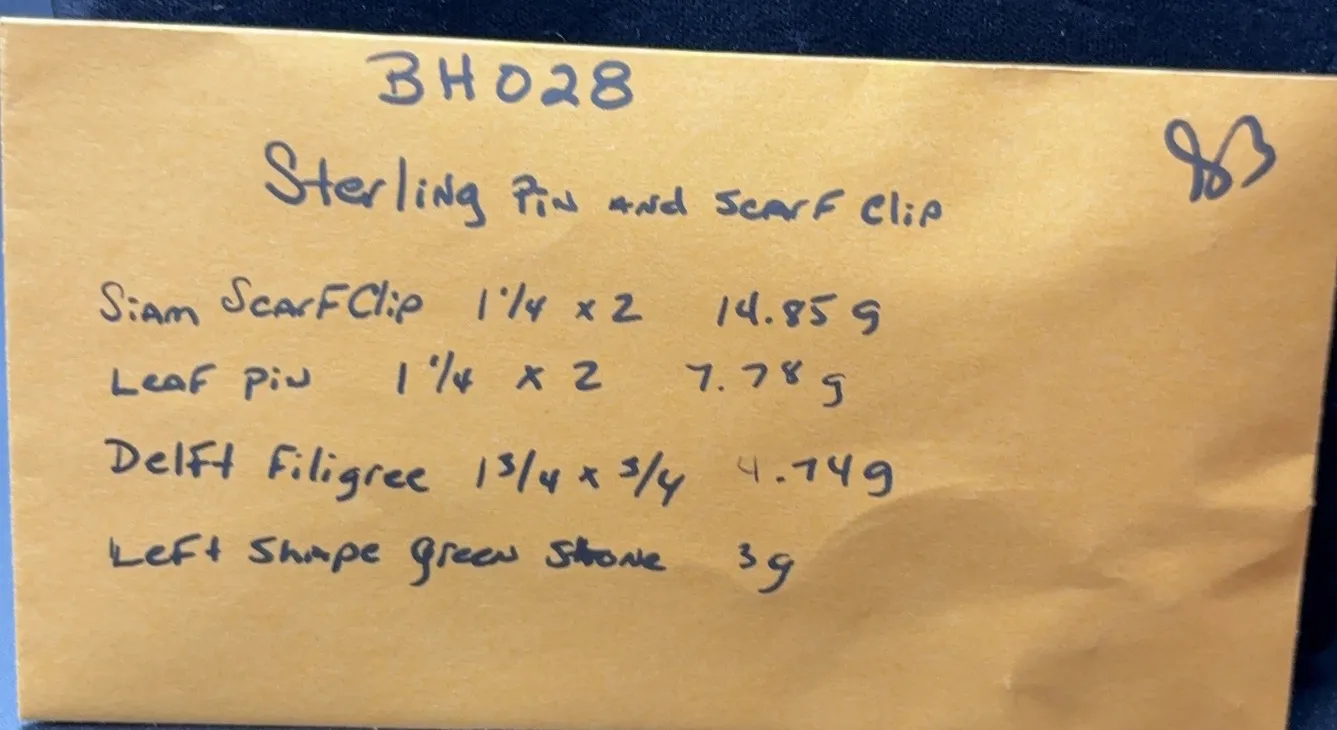 BH028
83
Sterling Pin and Scarf Clip
Siam Scarf Clip 1 1/4 x 2 14.85 g
Leaf Pin 1 1/4 x 2 7.78 g
Delft Filigree 1 3/4 x 3/4 4.74g
Left Shape green stone 3g